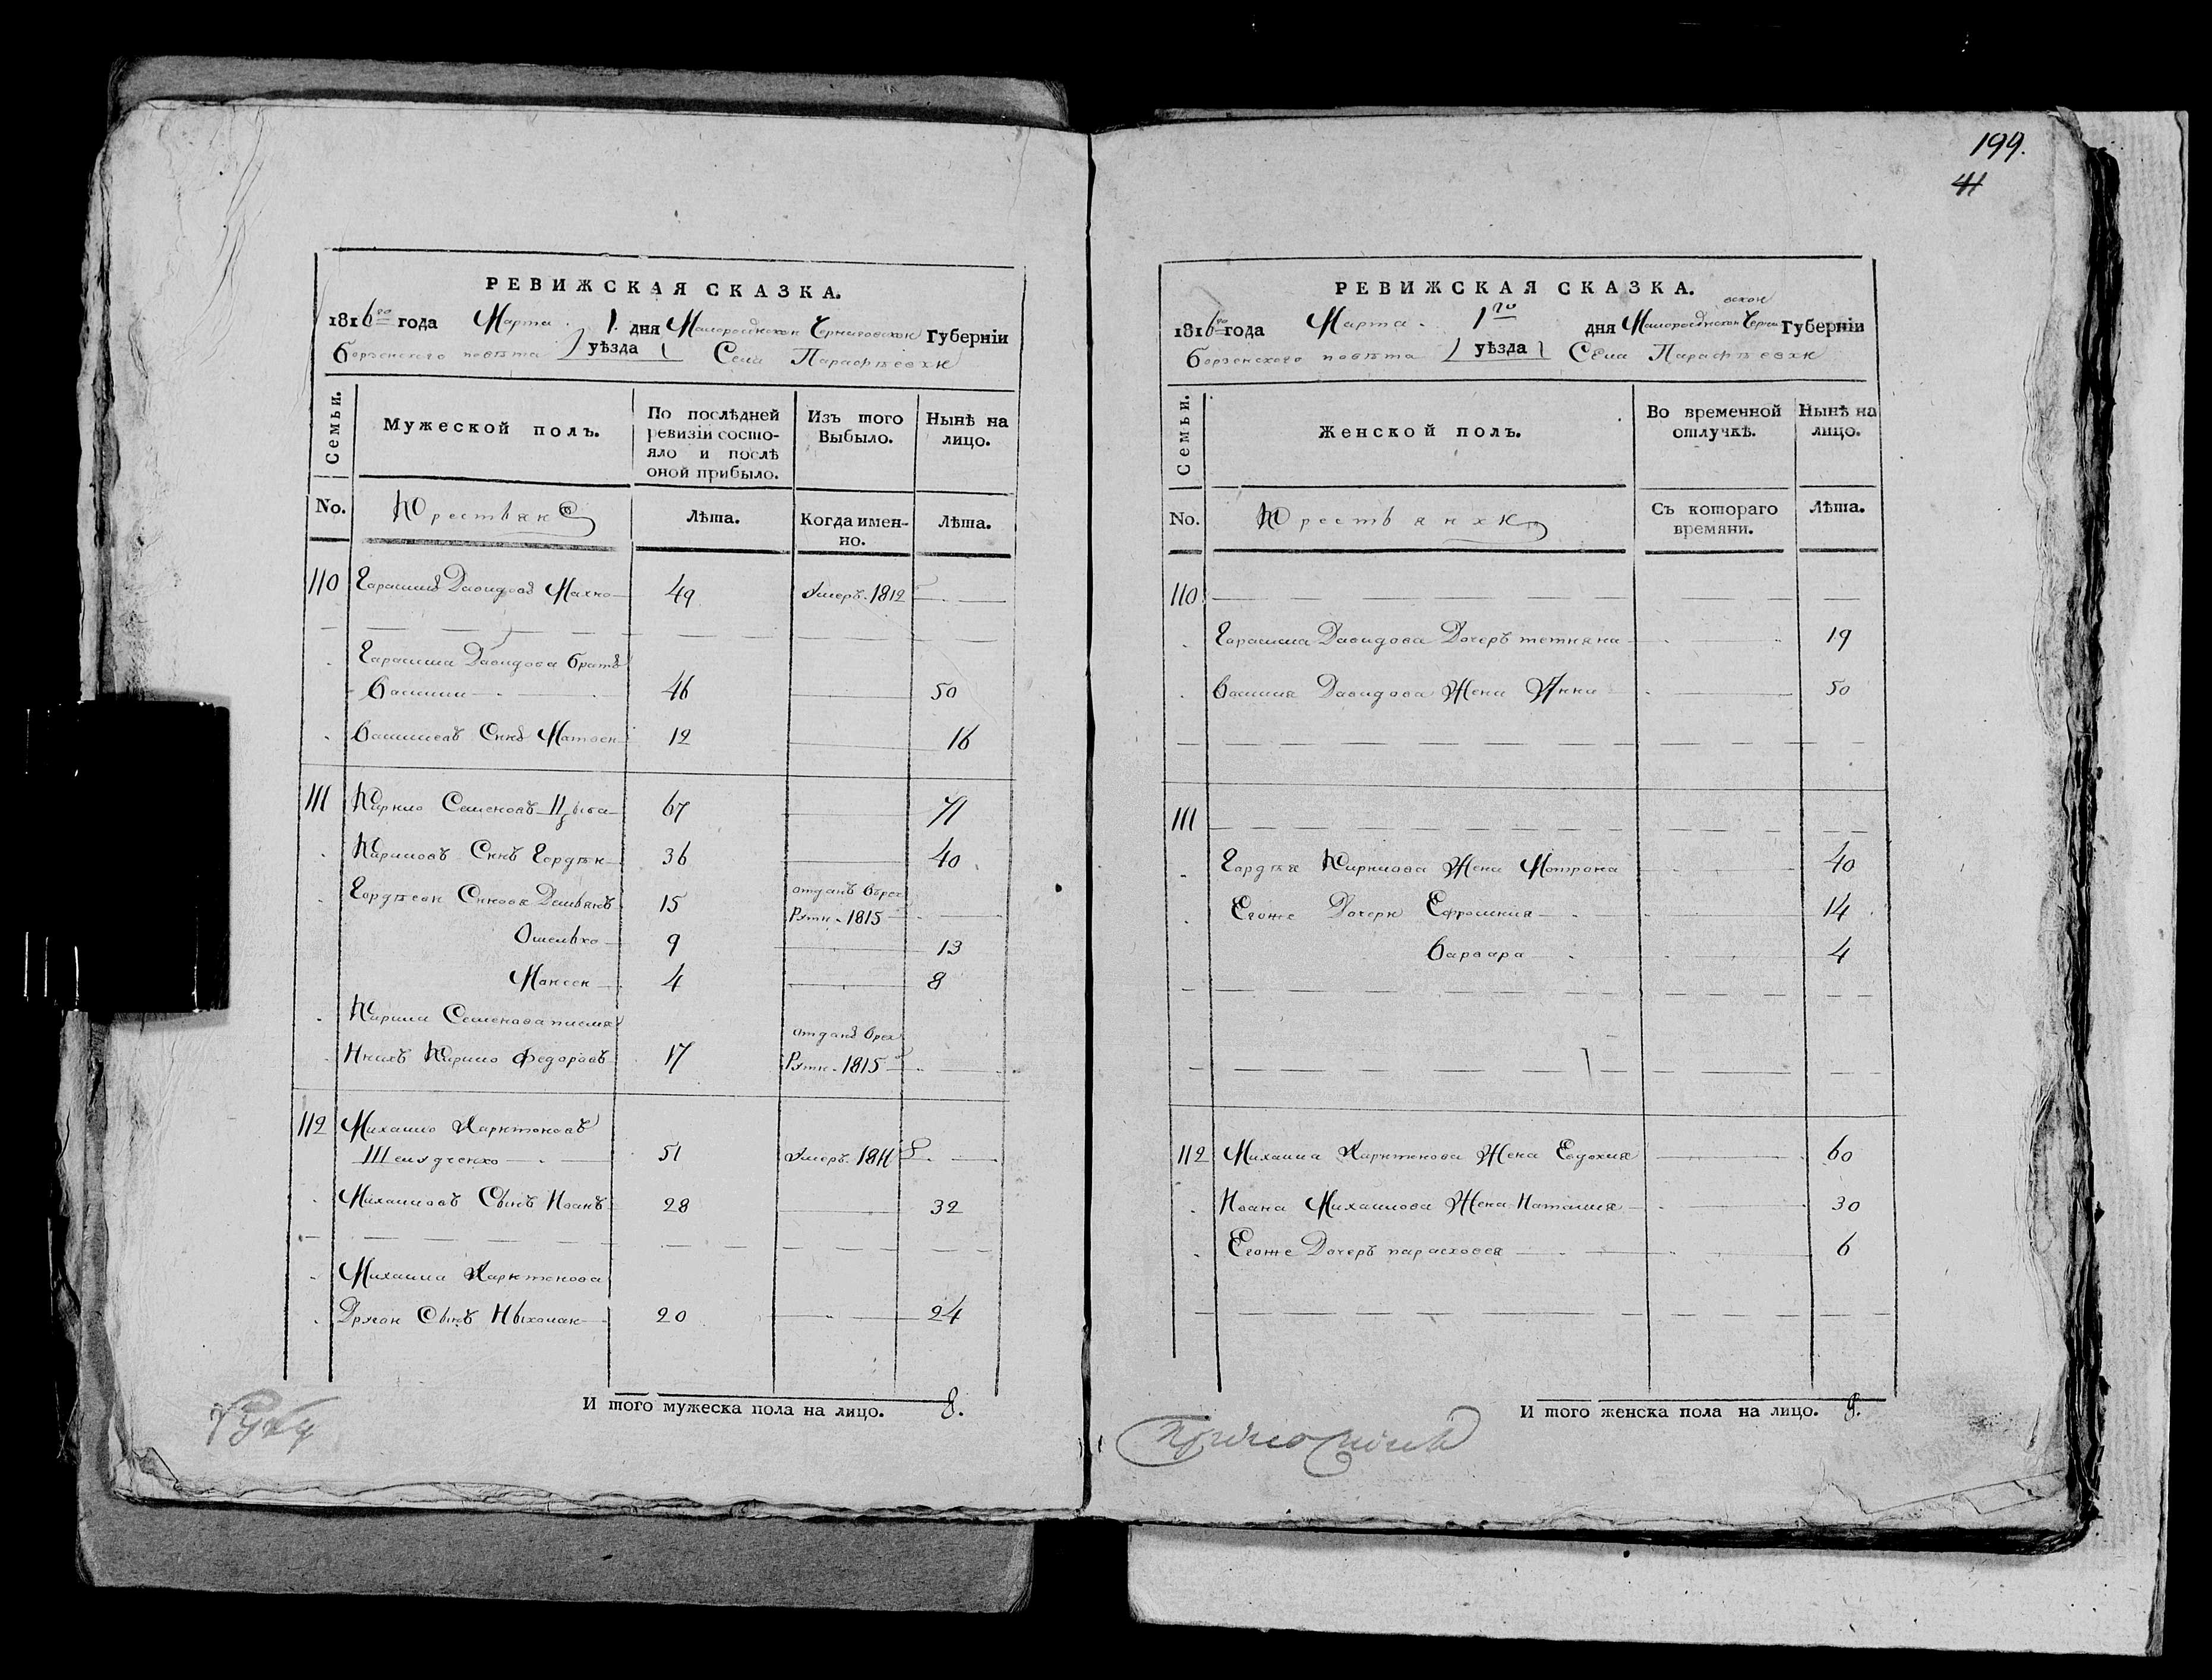 РЕВИЖСКАЯ СКАЗКА.
1816го года Марта 1. дня Малоросійской Черниговской Губерніи
Борзенского повѣта уѣзда Села Парафѣевки
Семьи.
Мужеской полъ.
По послѣдней ревизіи состо-
яло и послѣ
оной прибыло.
Изъ того
Выбыло.
Нынѣ на
лицо.
No.
Крестьяне
Лѣта.
Когда имен-
но.
Лѣта.
110 Герасимъ Давидовъ Махно 49 Умеръ 1812
Герасима Давидова братъ
Василий 46 50
Василіевъ Снъ Матвей 12 16
111 Кирило Семеновъ Цыба 67 71
Кириловъ Снъ Гордѣй 36 40
Гордѣеви Снновя Демьянъ 15 отданъ врек
Руты 1815
Омелько 9 13
Мойсей 4 8
Кирила Семенова племя
никъ Кирило Федоровъ 17 отданъ врек
Руты 1815
112 Михайло Харитоновъ
Шелудченко 51 Умеръ 1811
Михайловъ Сынъ Иванъ 28 32
Михайла Харитонова
Другой Сынъ Ныколай 20 24
И того мужеска пола на лицо. 8.
Руку
199.
41
РЕВИЖСКАЯ СКАЗКА.
1816го года Марта 1го дня Малоросійской Черниговской Губерніи
Борзенского повѣта уѣзда Села Парафѣевки
Семьи.
Женской полъ.
Во временной
отлучкѣ.
Нынѣ на
лицо.
No.
Крестьянки
Съ котораго
времяни.
Лѣта.
110
Герасима Давидова Дочеръ тетияна 19
Василия Давидова Жена Анна 50
111
Гордѣя Кирилова Жена Мотрона 40
Егоже Дочери Ефросиния 14
Варвара 4
112 Михайла Харитонова Жена Евдокия 60
Ивана Михайлова Жена Наталия 30
Егоже Дочеръ парасковея 6
И того женска пола на лицо. 8.